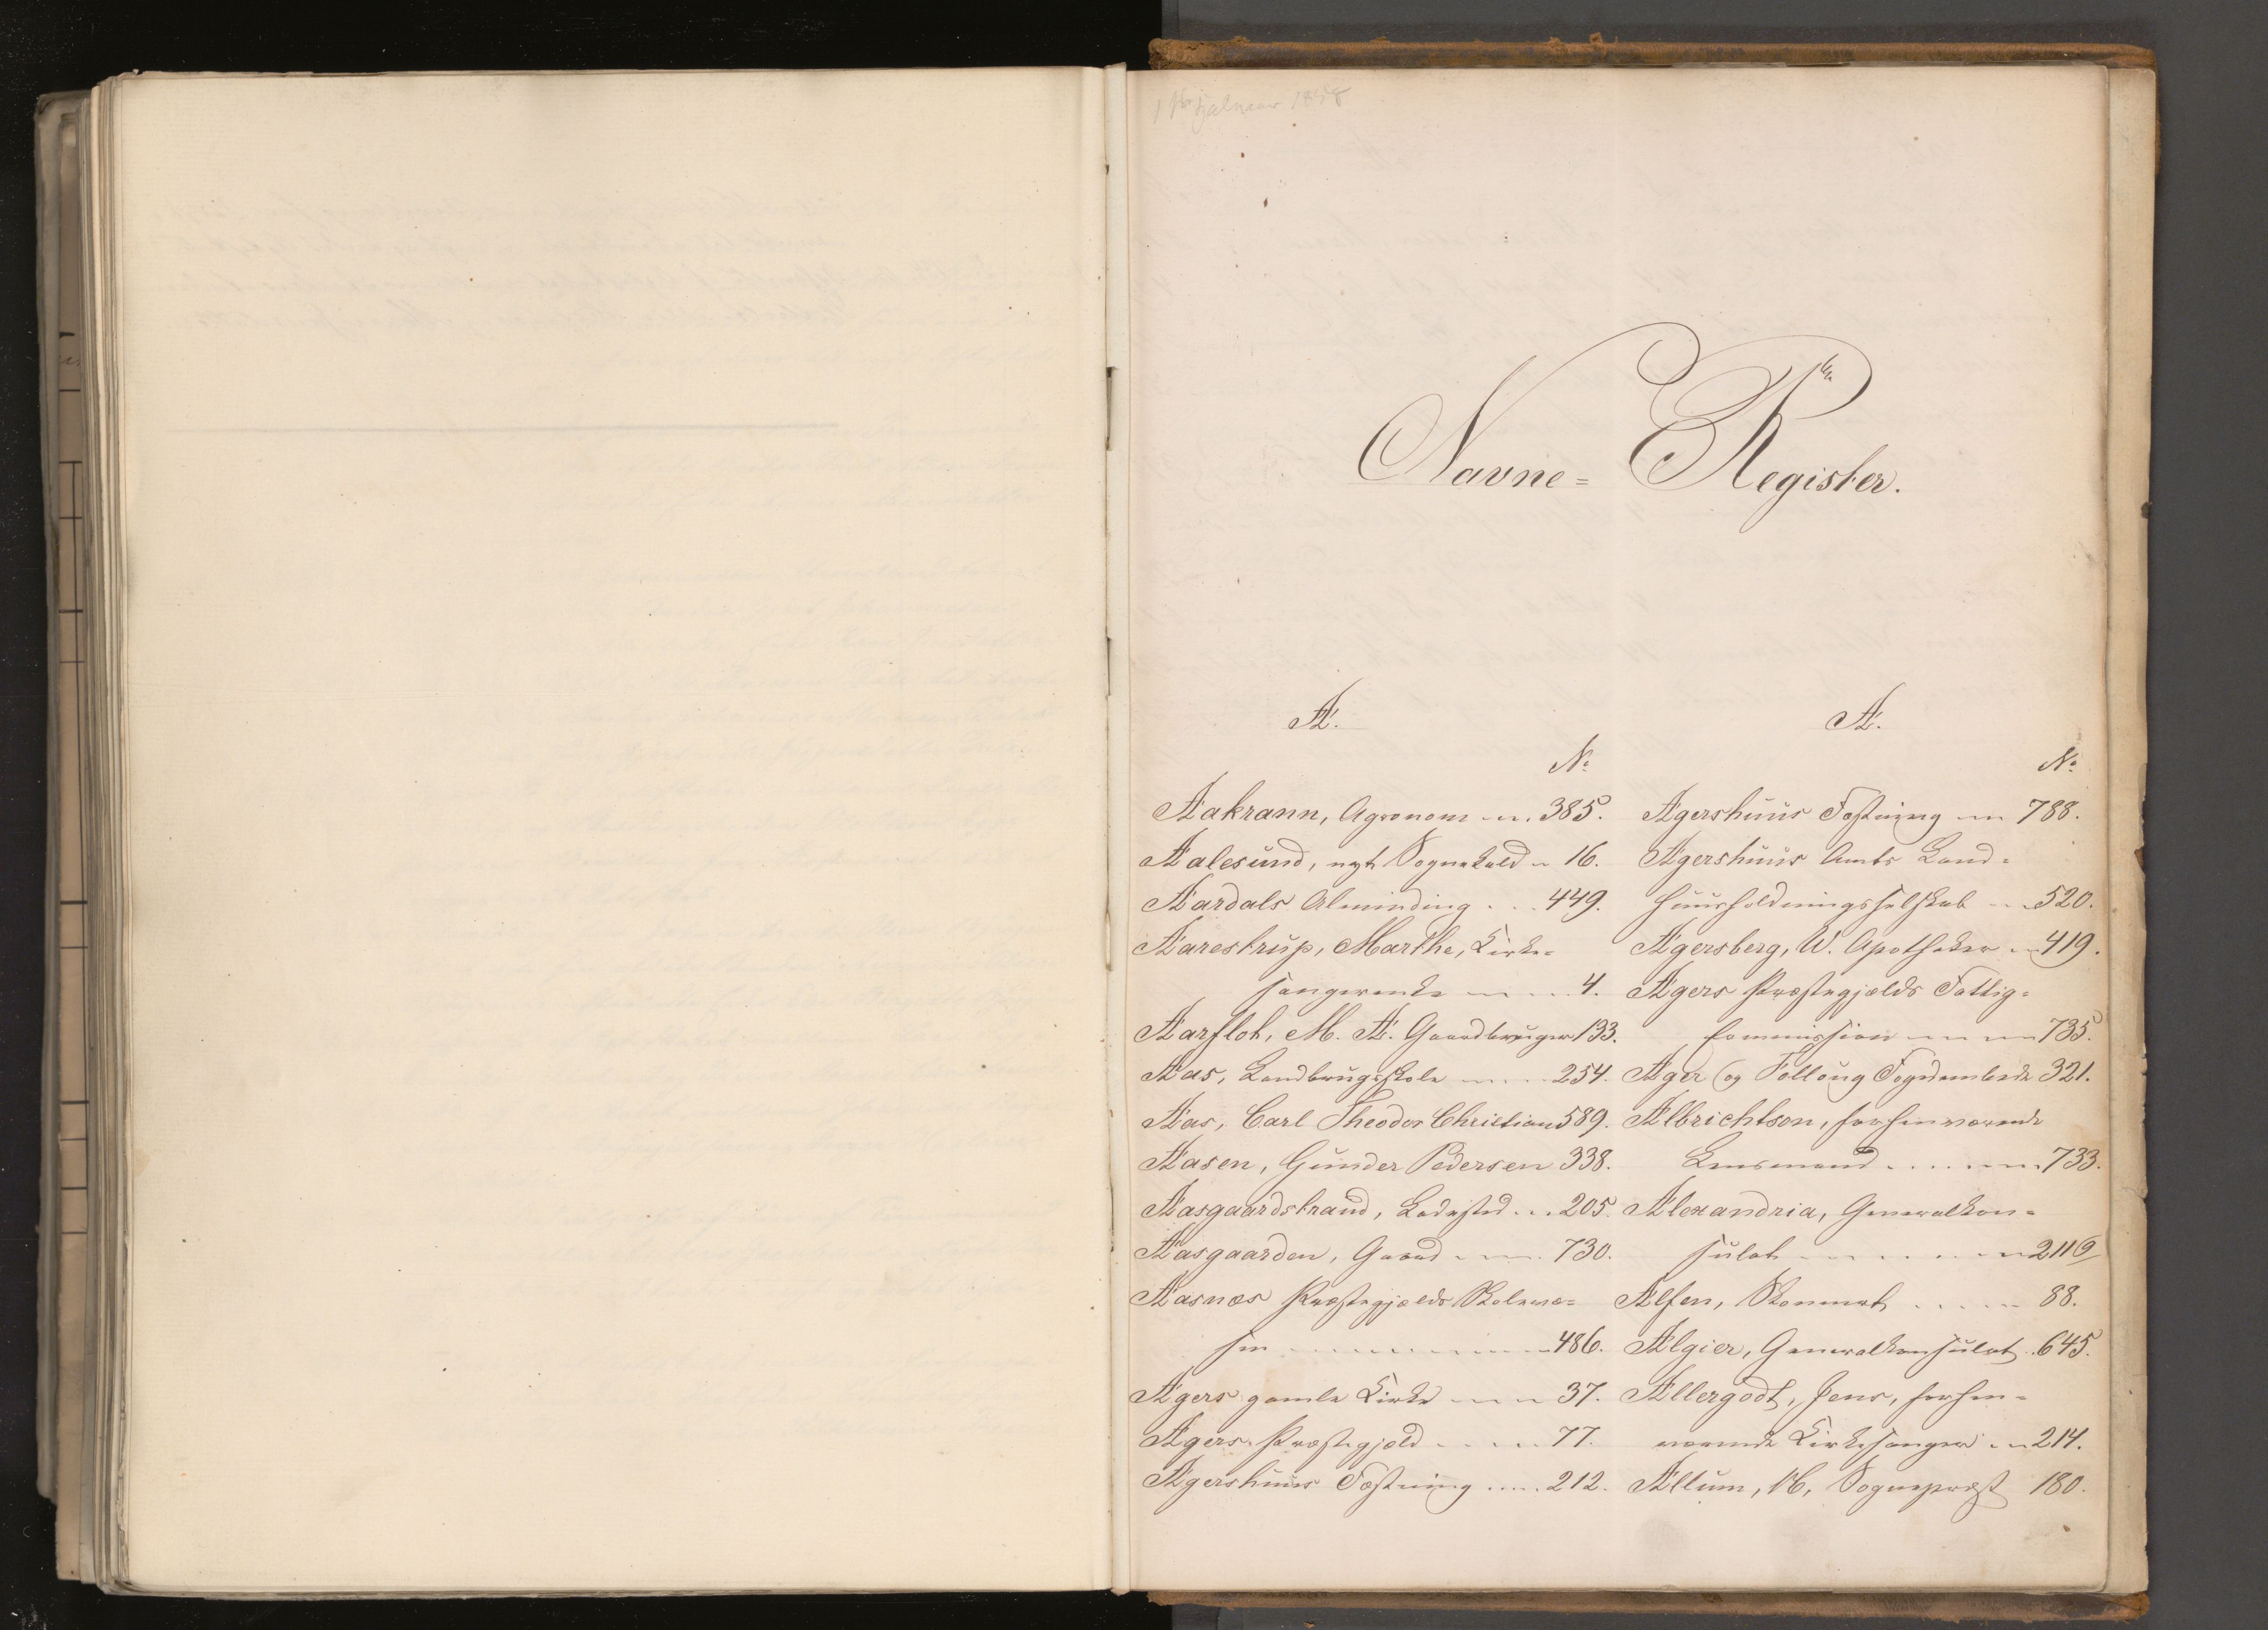 1 1858
Navne= Register.
A.
No
Aakrann, Agronom 385.
Aalesund, nyt Sognekald 16.
Aardals Alminding 449.
Aarestrup, Marthe, Kirke=
sangerenke 4.
Aarflot, M. A. Gaardbruger 133.
Aas, Landbrugsskole 254.
Aas, Carl Theodor Christian 589.
Aasen, Gunder Pedersen 338.
Aasgaardstrand, Ladested 205.
Aasgaarden, Gaard 730.
Aasnæs Præstegjælds Skolevæ=
sen 486.
Agers gamle Kirke 37.
Agers Præstegjæld 77.
Agershuus Fæstning 212.
A.
No
Agershuus Fæstning 788.
Agershuus Amts Land=
huusholdningsselskab 520.
Agersberg, W. Apotheker 419.
Agers Præstegjælds Fattig=
commission 735.
Ager og Folloug Fogdembede 321.
Albrichtson, forhenværende
Lensmand 733.
Alexandria, Generalkon=
sulat 211
Alfen, Skonnert 88.
Algier, Generalkonsulat 645.
Allergodt, Jens, forhen=
værende Kirkesanger 214.
Allum, H, Sognepræst 180.